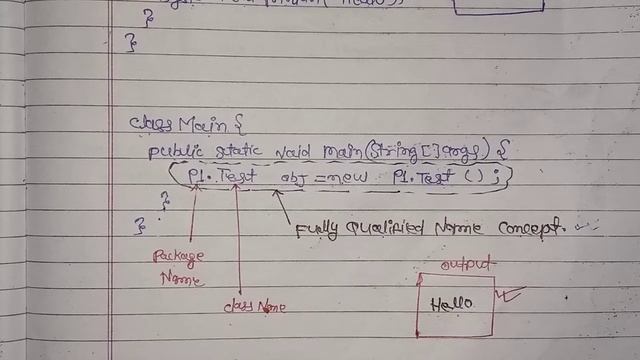 }
}
class Main {
public static void main(String[] args) {
P1.Test obj = new P1.Test();
}
}
Fully Qualified Name Concept.
Package
Name
class Name
output
Hello